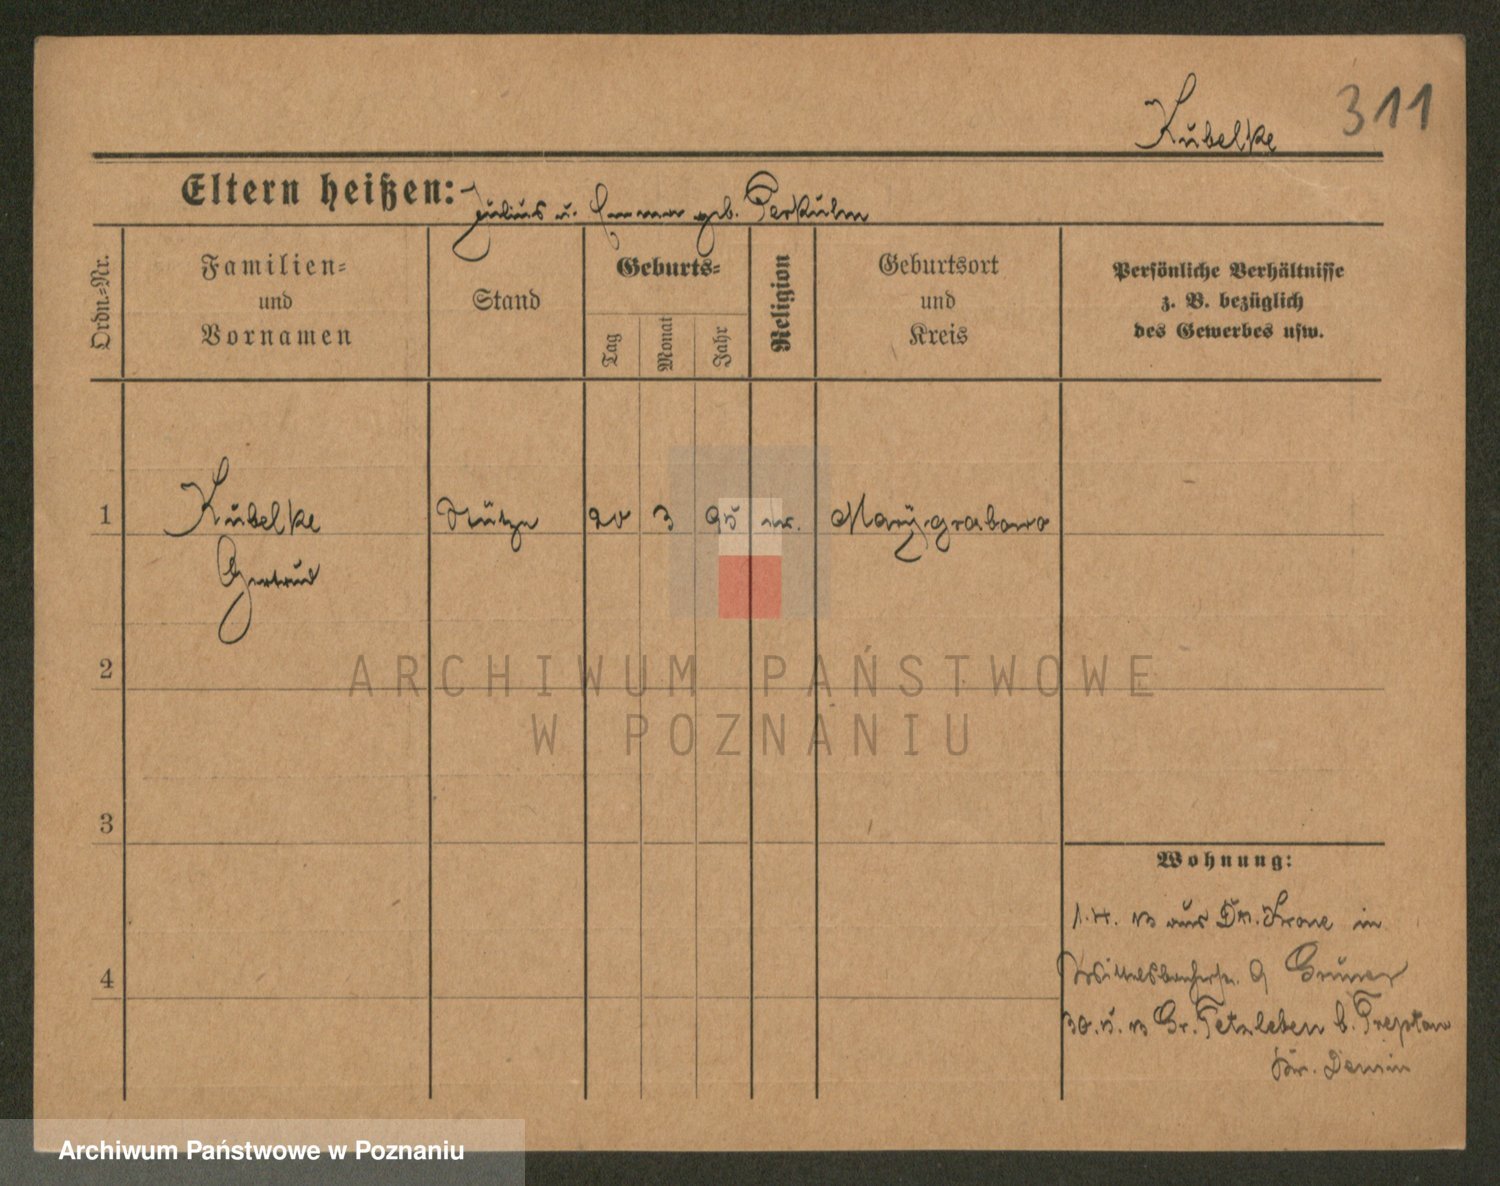 Kubelke 311
Eltern heißen: Julius u. Emma geb. Perkuhn
Ordn.-Nr.
Familien-
und
Vornamen
Stand
Geburts-
Tag
Monat
Jahr
Religion
Geburtsort
und
Kreis
Persönliche Verhältnisse
z. B. bezüglich
des Gewerbes usw.
1 Kubelke Stütze 20 3 95 ev. Marggrabowo
Gertrud
2
3
4
ARCHIWUM PAŃSTWOWE
W POZNANIU
Wohnung:
1.4. 13 aus Dt. Krone in
9 Grüner
30.5. 13 Gr. Tetzleben b. Treptow
Kr. Demin
Archiwum Państwowe w Poznaniu